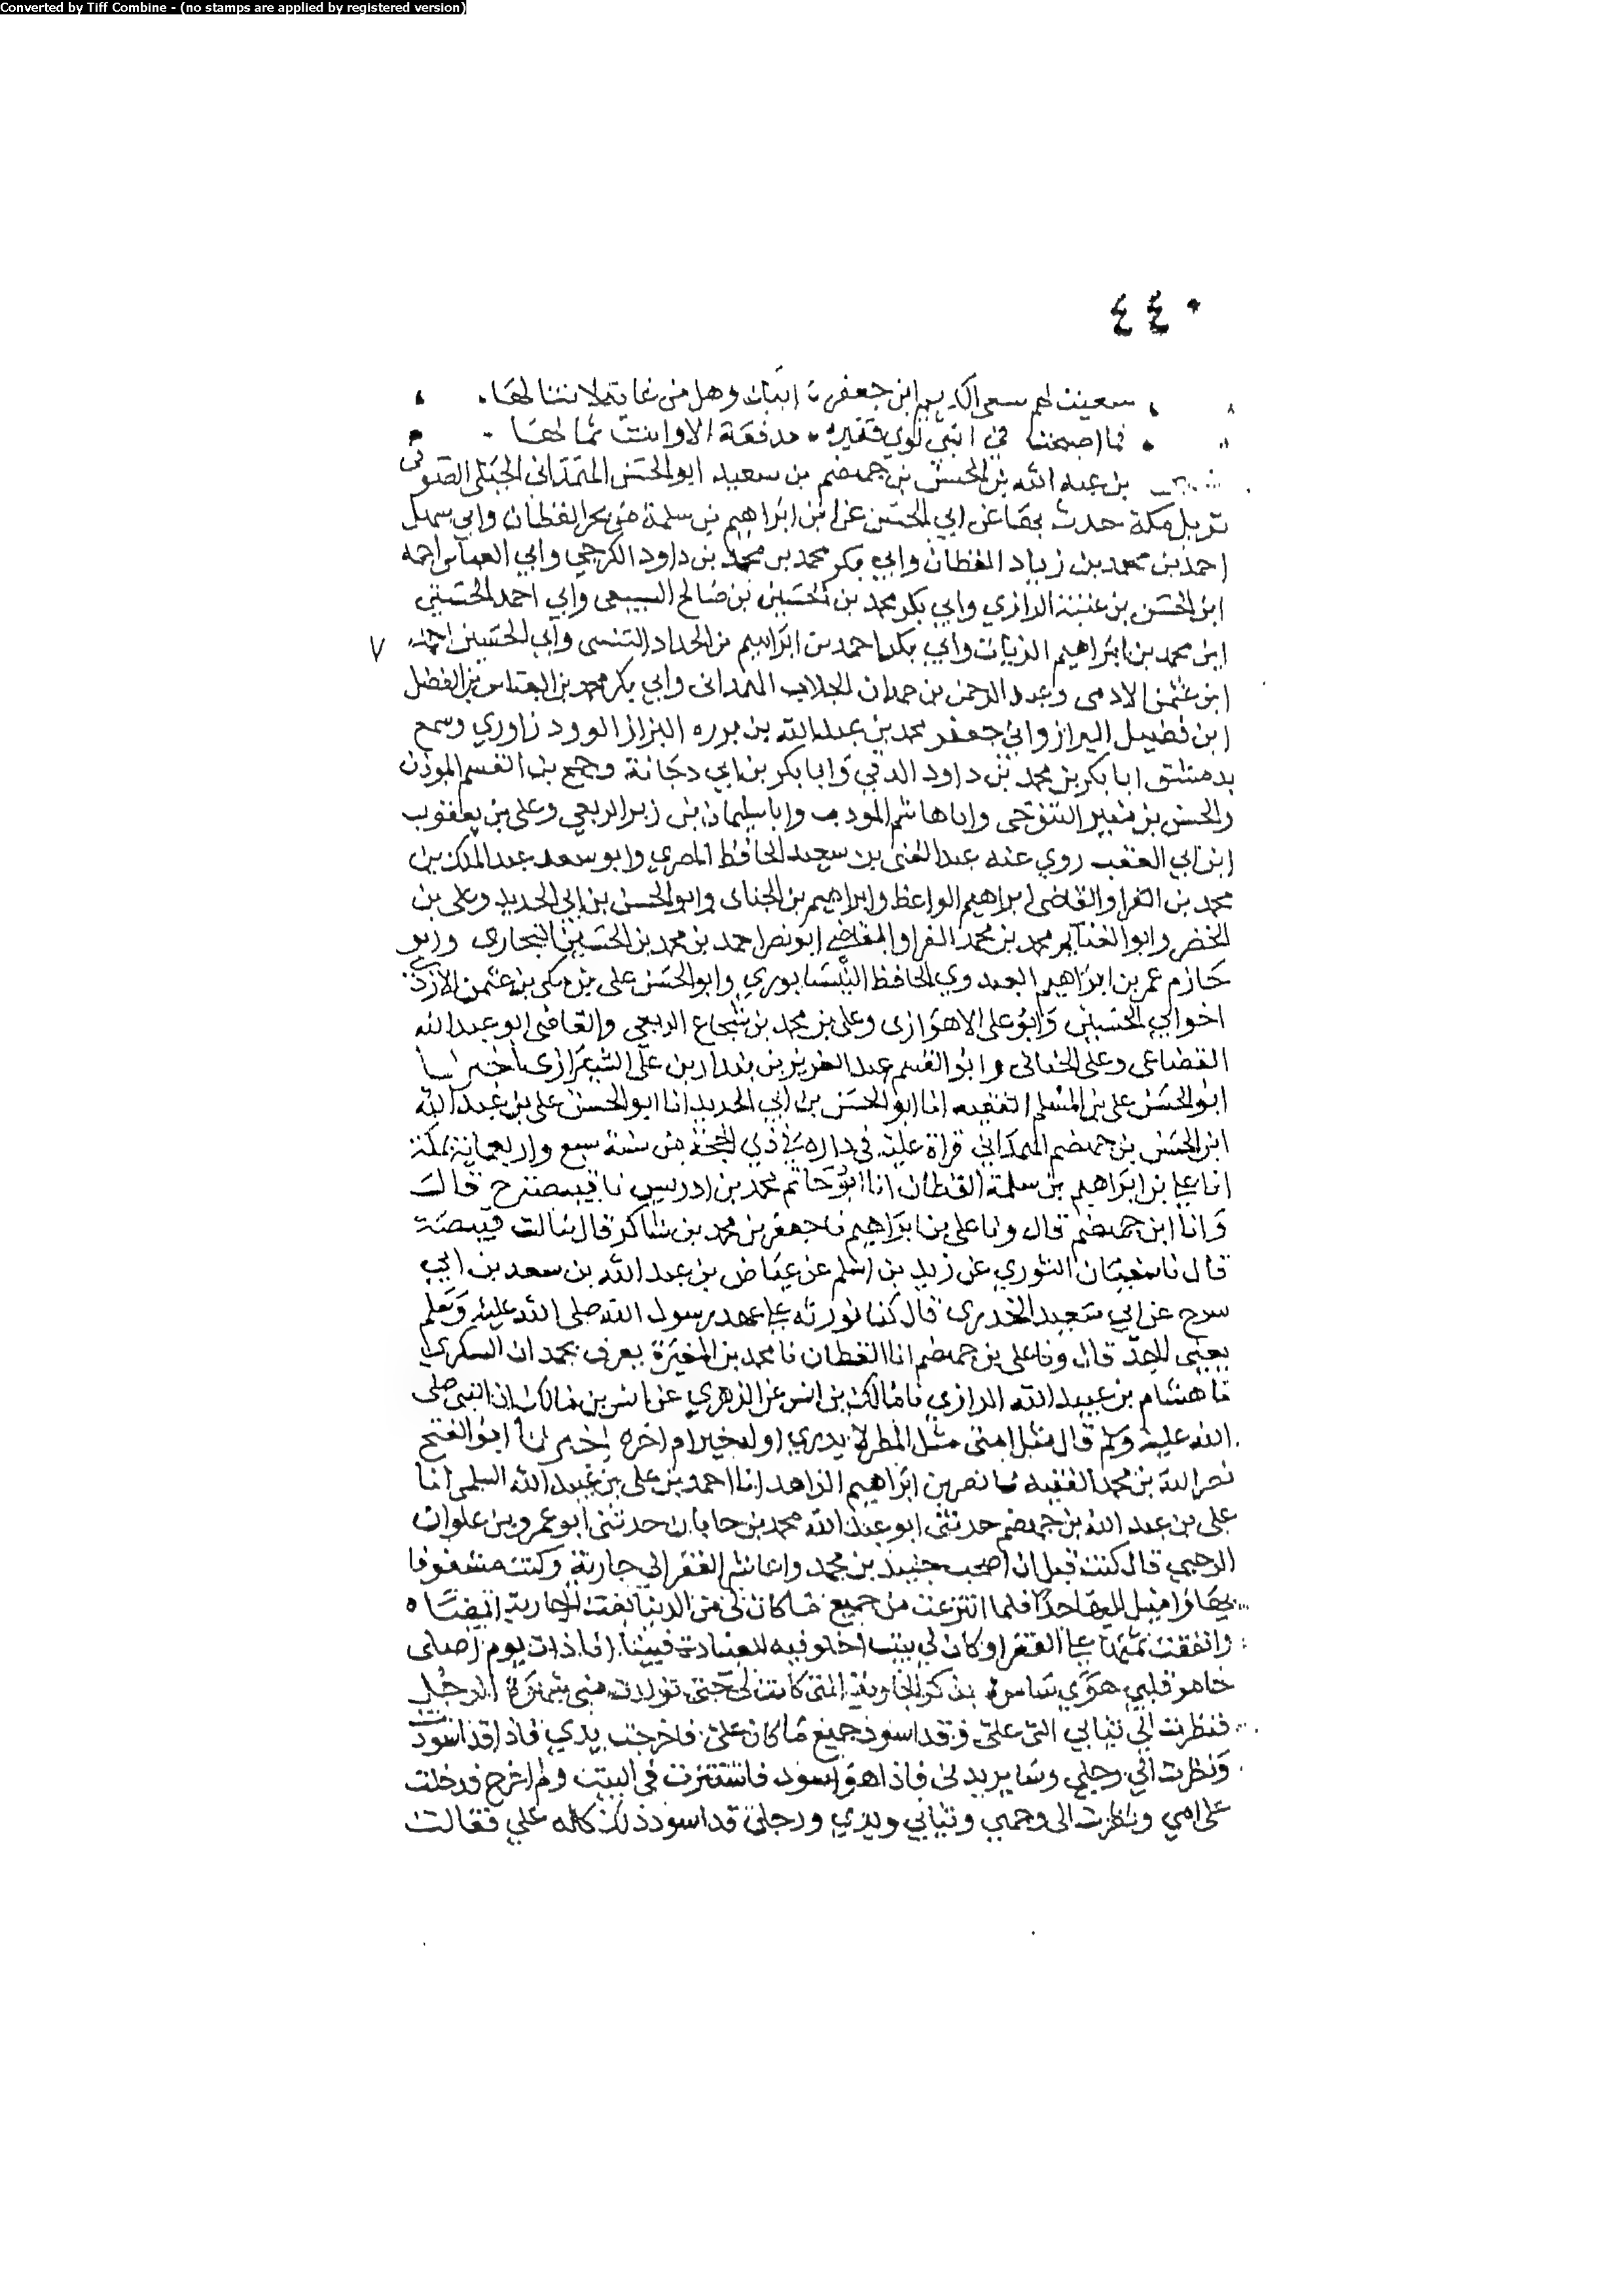 Converted by Tiff Combine - (no stamps are applied by registered version)
٤٤٠
سعيت لهم سعي الكريم ابن جعفر ابيك وهل من غاية لا تنالها
فما اصبحت في ابني لوي فقيرة مدقعة الا وانت ثمالها
بن عبد الله بن الحسن بن جهضم بن سعيد ابو الحسن الهمذاني الجبلي الصوفي
نزيل مكة حدث بها عن ابي الحسن علي بن ابراهيم بن سلمة بن بحر القطان وابي سهل
احمد بن محمد بن زياد القطان وابي بكر محمد بن محمد بن داود الكرجي وابي العباس احمد
ابن الحسن بن عتبة الرازي وابي بكر محمد بن الحسين بن صالح السبيعي وابي احمد الحسين
ابن محمد بن ابراهيم الزيات وابي بكر احمد بن ابراهيم بن الحداد التنيسي وابي الحسين احمد
ابن عثمن الادمي وعبد الرحمن بن حمدان الجلاب الهمداني وابي بكر محمد بن العباس بن الفضل
ابن فضيل البزاز وابي جعفر محمد بن عبد الله بن برزه البزاز الروذراوري وسمع
بدمشق ابا بكر بن محمد بن داود الدقي وابا بكر بن ابي دجانة وجمح بن القسم الموذن
والحسن بن منير التنوخي وابا هاشم المودب وابا سليمان بن زبر الربعي وعلي بن يعقوب
ابن ابي العقب روي عنه عبد الغني بن سعيد الحافظ المصري وابو سعد عبد الملك بن
محمد بن القرا والقاضي ابراهيم الواعظ وابراهيم بن الجناى وابو الحسن بن ابي الحديد وعلي بن
الخضر وابو الغنائم محمد بن محمد الفرا والقاضي ابو نصر احمد بن محمد بن الحسين البخاري وابو
حازم عمر بن ابراهيم العبدوي الحافظ النيسابوري وابو الحسن علي بن مكي بن عثمن الازدي
اخو ابي الحسين وابو علي الاهوازي وعلي بن محمد بن شجاع الربعي والقاضي ابو عبد الله
القضاعي وعلي الحنائي وابو القسم عبد العزيز بن بندار بن علي الشيرازي اخبرنا
ابو الحسن علي بن المسلم الفقيه انا ابو الحسن بن ابي الحديد انا ابو الحسن علي بن عبد الله
ابن الحسن بن جهضم الهمداني قراة عليه في داره في ذي الحجة من سنة سبع واربعماية بمكة
انا علي بن ابراهيم بن سلمة القطان انا ابو حاتم محمد بن ادريس نا قبيصة ح قال
وانا ابن جهضم قال ونا علي بن ابراهيم نا جعفر بن محمد بن شاكر قال سالت قبيصة
قال نا سفيان الثوري عن زيد بن اسلم عن عياض بن عبد الله بن سعد بن ابي
سرح عن ابي سعيد الخدري قال كنا نورثه علي عهد رسول الله صلى الله عليه وسلم
يعني الجد قال ونا علي بن جهضم انا القطان نا محمد بن المغيرة يعرف بحمدان السكري
نا هشام بن عبيد الله الرازي نا مالك بن انس عن الزهري عن انس بن مالك ان النبي صلى
الله عليه وسلم قال مثل امتي مثل المطر لا يدري اوله خير ام اخره اخبرنا ابو الفتح
نصر الله بن محمد الفقيه نا نصر بن ابراهيم الزاهد انا احمد بن علي بن عبيد الله السلمي انا
علي بن عبد الله بن جهضم حدثني ابو عبد الله محمد بن جابان حدثني ابو عمرو بن علوان
الرحبي قال كنت قبل ان اصحب جنيد بن محمد واعاشر الفقرا لي جارية وكنت مشغوفا
بها واميل اليها جدا فلما انتزعت من جميع ما كان لي من الدنيا بعت الجارية ايضا
وانفقت ثمنها علي الفقرا وكان لي بيت اخلو فيه للعبادة فبينا انا ذات يوم اصلي
خامر قلبي هوي بذكر الجارية التي كانت لي حتى تولدت مني شهوة الرجل
فنظرت الي ثيابي التي علي وقد اسود جميع ما كان علي فاخرجت يدي فاذا قد اسودت
ونظرت الي رجلي وساير بدني فاذا هو اسود فاستترت في البيت ولم اخرج فدخلت
علي امي ونظرت الى وجهي وثيابي ويدي ورجلي قد اسود ذلك كله علي فقالت
٧